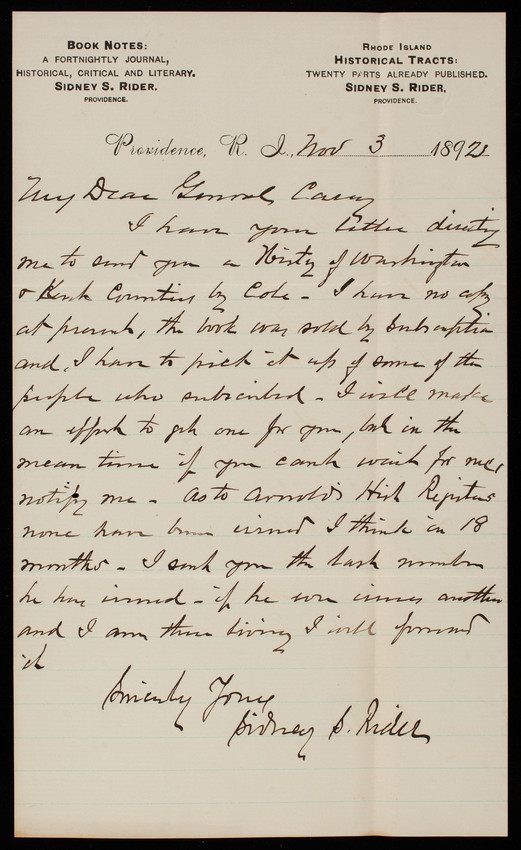 BOOK NOTES:
A FORTNIGHTLY JOURNAL,
HISTORICAL, CRITICAL AND LITERARY.
SIDNEY S. RIDER,
PROVIDENCE.
RHODE ISLAND
HISTORICAL TRACTS:
TWENTY PARTS ALREADY PUBLISHED.
SIDNEY S. RIDER,
PROVIDENCE.
Providence, R. I., Nov 3 1892
My Dear General Casey
I have your letter directing
me to send you a Histy of Washington
& Kent Counties by Cole - I have no copy
at present, the book was sold by subscription
and I have to pick it up of some of the
people who subscribed - I will make
an effort to get one for you, but in the
mean time if you cant wait for me,
notify me - As to Arnolds Hist Register
none have been issued I think in 18
months - I sent you the last number
he has issued - if he ever issues another
and I am then living I will forward
it
Sincerely Yours
Sidney S. Rider